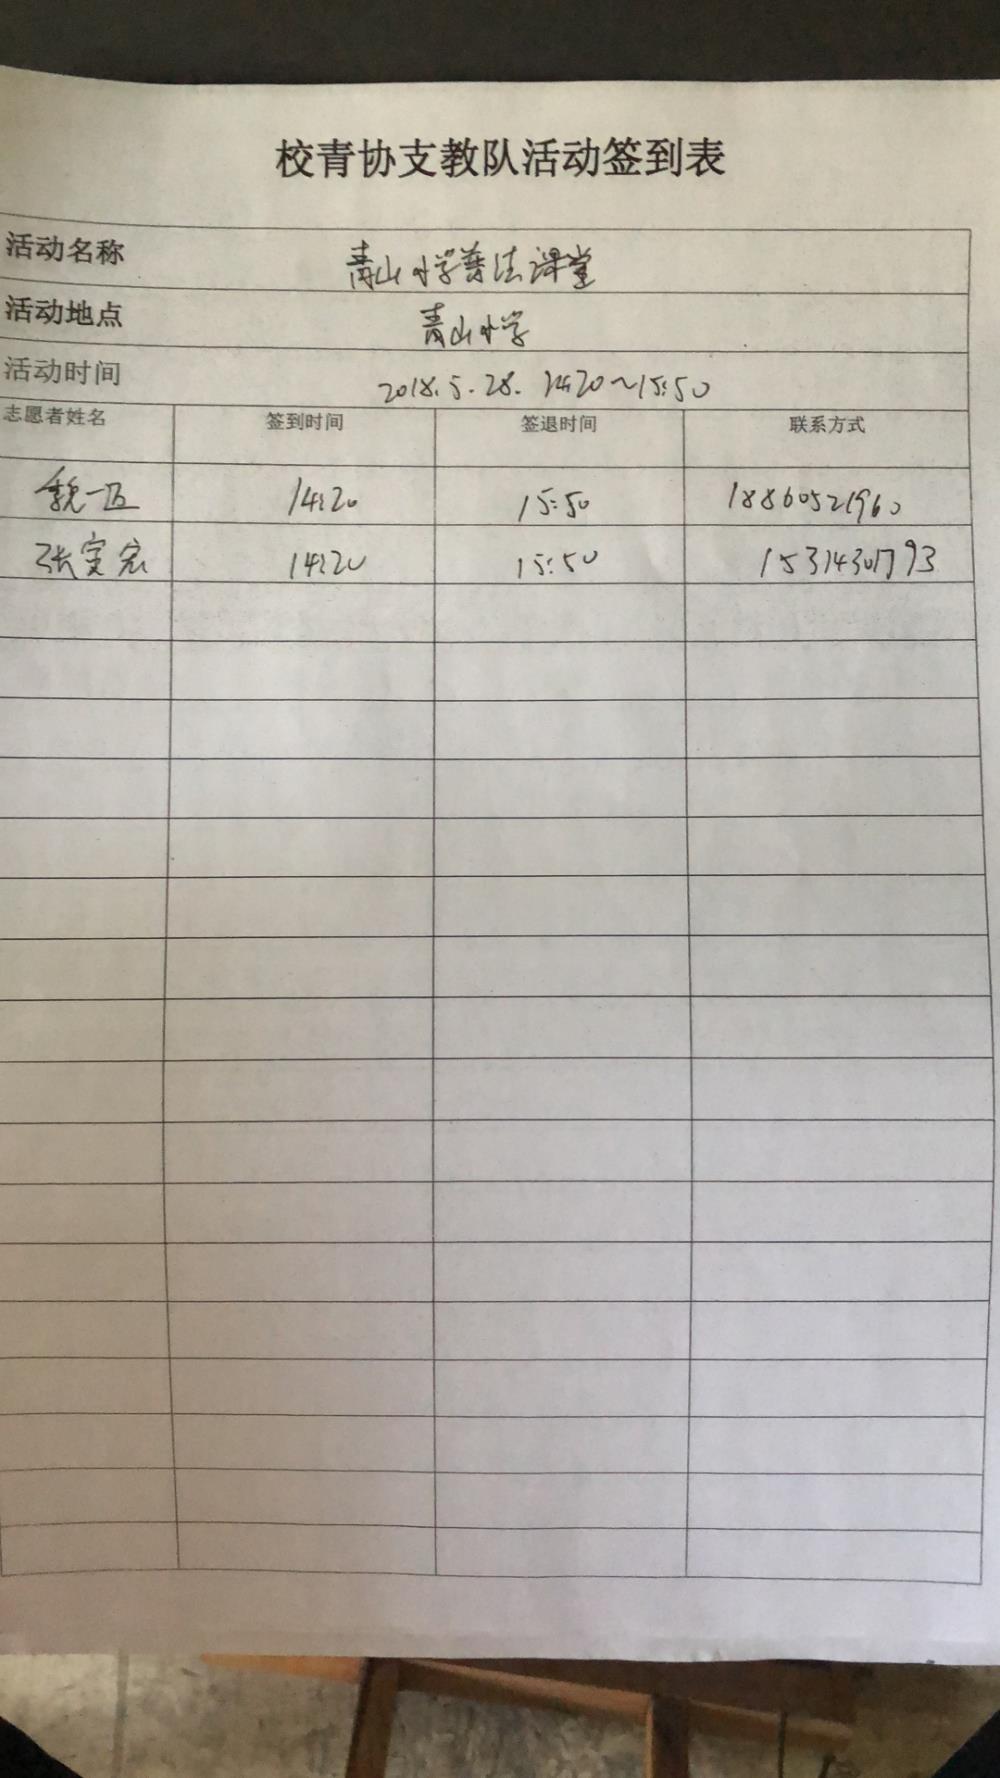 校青协支教队活动签到表
活动名称 青山小学普法课堂
活动地点 青山小学
活动时间 2018.5.28. 14:20~15:50
志愿者姓名 签到时间 签退时间 联系方式
魏一 14:20 15:50 18860521960
张 宏 14:20 15:50 15314301793